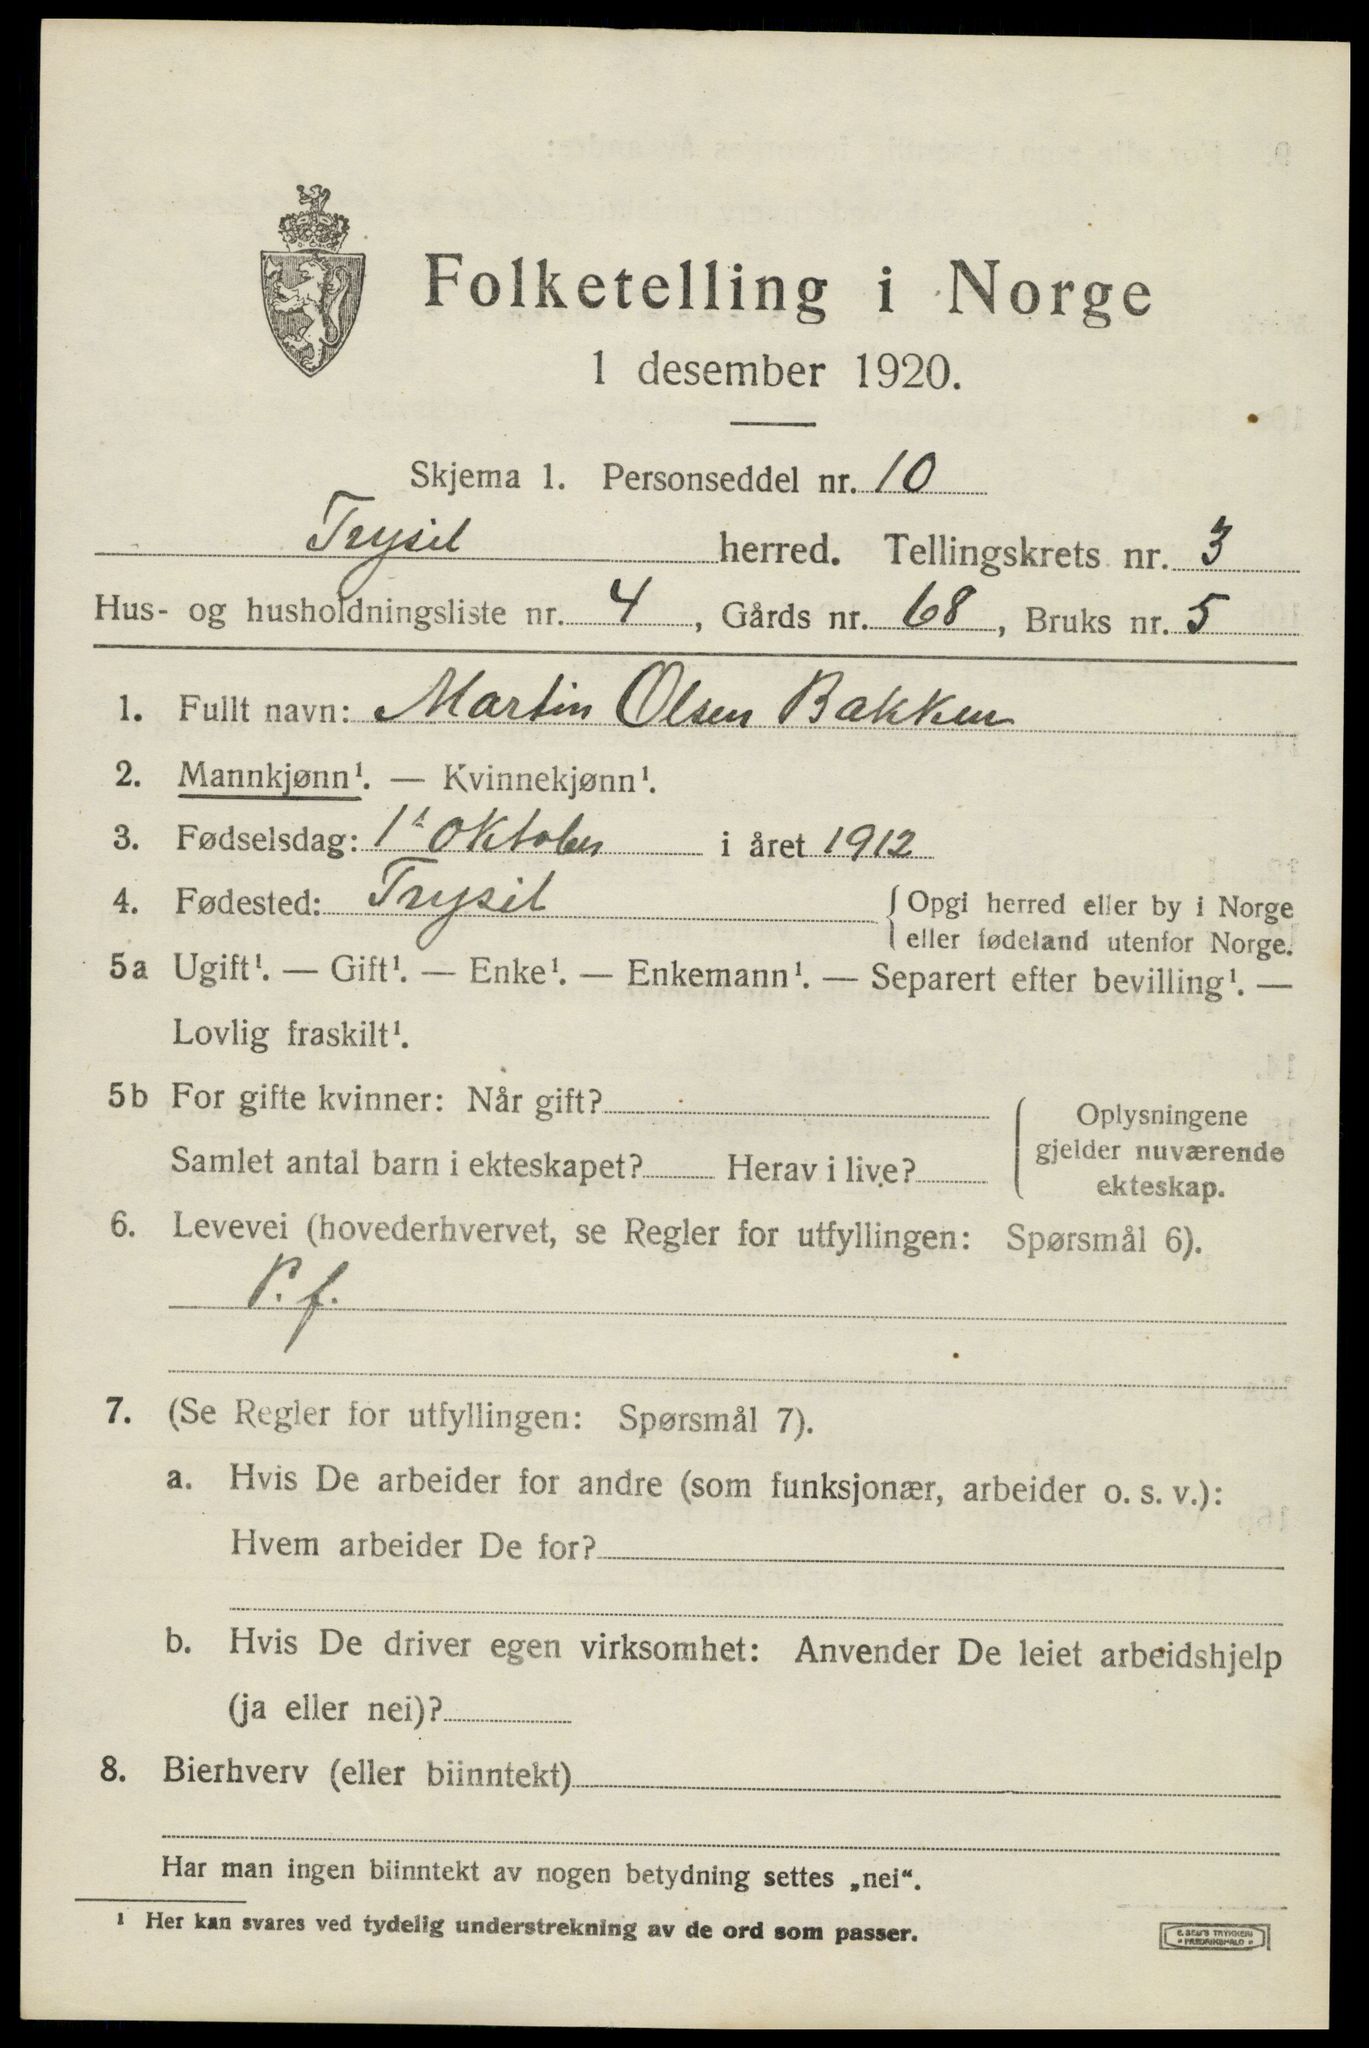 Folketelling i Norge
1 desember 1920.
Skjema 1. Personseddel nr. 10
Trysil herred. Tellingskrets nr. 3
Hus- og husholdningsliste nr. 4, Gårds nr. 68, Bruks nr. 5
1. Fullt navn: Martin Olsen Bakken
2. Mannkjønn¹. — Kvinnekjønn¹.
3. Fødselsdag: 1ᵗ oktober i året 1912
4. Fødested: Trysil { Opgi herred eller by i Norge
eller fødeland utenfor Norge.
5a Ugift¹. — Gift¹. — Enke¹. — Enkemann¹. — Separert efter bevilling¹. —
Lovlig fraskilt¹.
5b For gifte kvinner: Når gift?
Samlet antal barn i ekteskapet? Herav i live?
Oplysningene
gjelder nuværende
ekteskap.
6. Levevei (hovederhvervet, se Regler for utfyllingen: Spørsmål 6).
P. f.
7. (Se Regler for utfyllingen: Spørsmål 7).
a. Hvis De arbeider for andre (som funksjonær, arbeider o. s. v.):
Hvem arbeider De for?
b. Hvis De driver egen virksomhet: Anvender De leiet arbeidshjelp
(ja eller nei)?
8. Bierhverv (eller biinntekt)
Har man ingen biinntekt av nogen betydning settes „nei“.
¹ Her kan svares ved tydelig understrekning av de ord som passer.
E. SEM'S TRYKKERI
FREDRIKSHALD